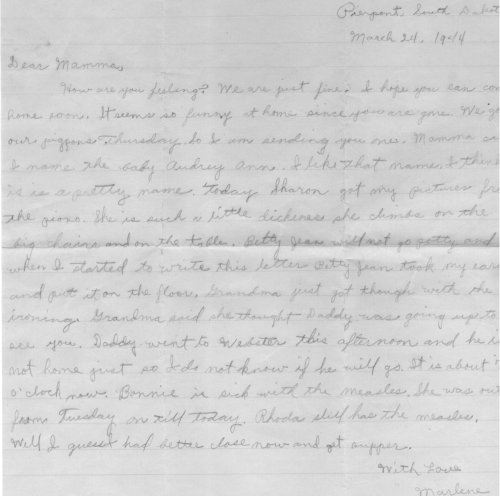 Pierpont, South Dakot
March 24, 1944
Dear Mamma,
How are you feeling? We are just fine. I hope you can com
home soon. It seems so funny at home since you are gone. We g
our Thursday. So I am sending you one. Mamma
I name the baby Audrey Ann. I like that name. I think
is is a pretty name. Today Sharon got my pictures fro
the piano. She is such a little dickens she climbs on the
big chairs and on the table. Betty Jean will not go potty and
when I started to write this letter Betty Jean took my
and put it on the floor. Grandma just got though with the
ironing. Grandma said she thought Daddy was going up to
see you. Daddy went to Webster this afternoon and he is
not home just so I do not know if he will go. It is about
o'clock now. Bonnie is sick with the measles. She was out
from Tuesday on till today. Rhoda still has the measles.
Well I guess I had better close now and get supper.
With Love
Marlene